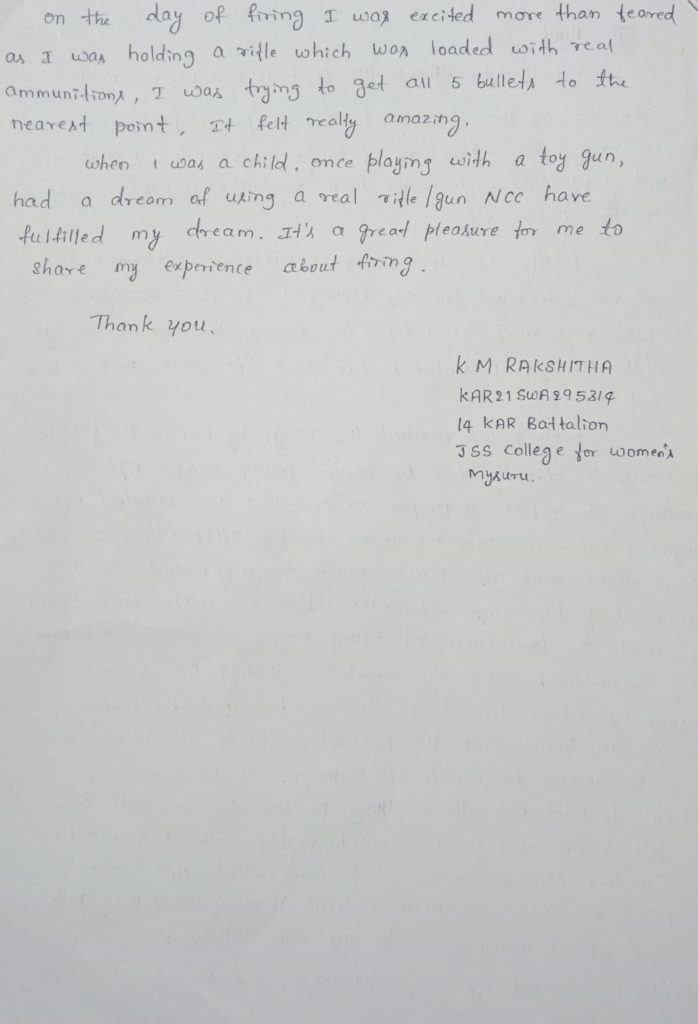 on the day of firing I was excited more than feared
as I was holding a rifle which was loaded with real
ammunitions, I was trying to get all 5 bullets to the
nearest point, It felt really amazing.
when I was a child, once playing with a toy gun,
had a dream of using a real rifle/gun NCC have
fulfilled my dream. It's a great pleasure for me to
share my experience about firing.
Thank you.
K M RAKSHITHA
KAR21SWA295314
14 KAR Battalion
JSS College for women's
Mysuru.